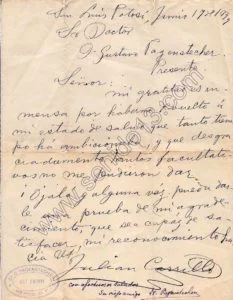 San Luis Potosí, Junio 17 de 19
Sr Doctor
D. Gustavo Pagenstecher
Presente
Señor:
mi gratitud es in-
mensa por haberme vuelto á
mi estado de salud que tanto tiem
po há ambicionaba, y que desgra
ciadamente tantos facultati-
vos no me pudieron dar
¡Ojalá y alguna vez pueda dar
le prueba de mi agrade-
cimiento, que sea capaz de sa-
tisfacer, mi reconocimiento ha
cia Ud.
Julian Carrillo
con afectuosos saludos
Su viejo amigo